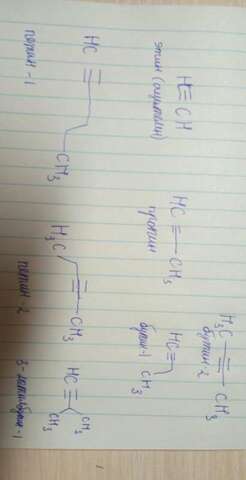 HC≡CH
этин (ацетилен)
HC≡CH₃
пропин
H₃C≡CH₃
бутин-2
HC≡CH₃
бутин-1
HC≡CH₃
пентин-1
H₃C≡CH₃
пентин-2
HC≡CH₃
CH₃
3-метилбутин-1